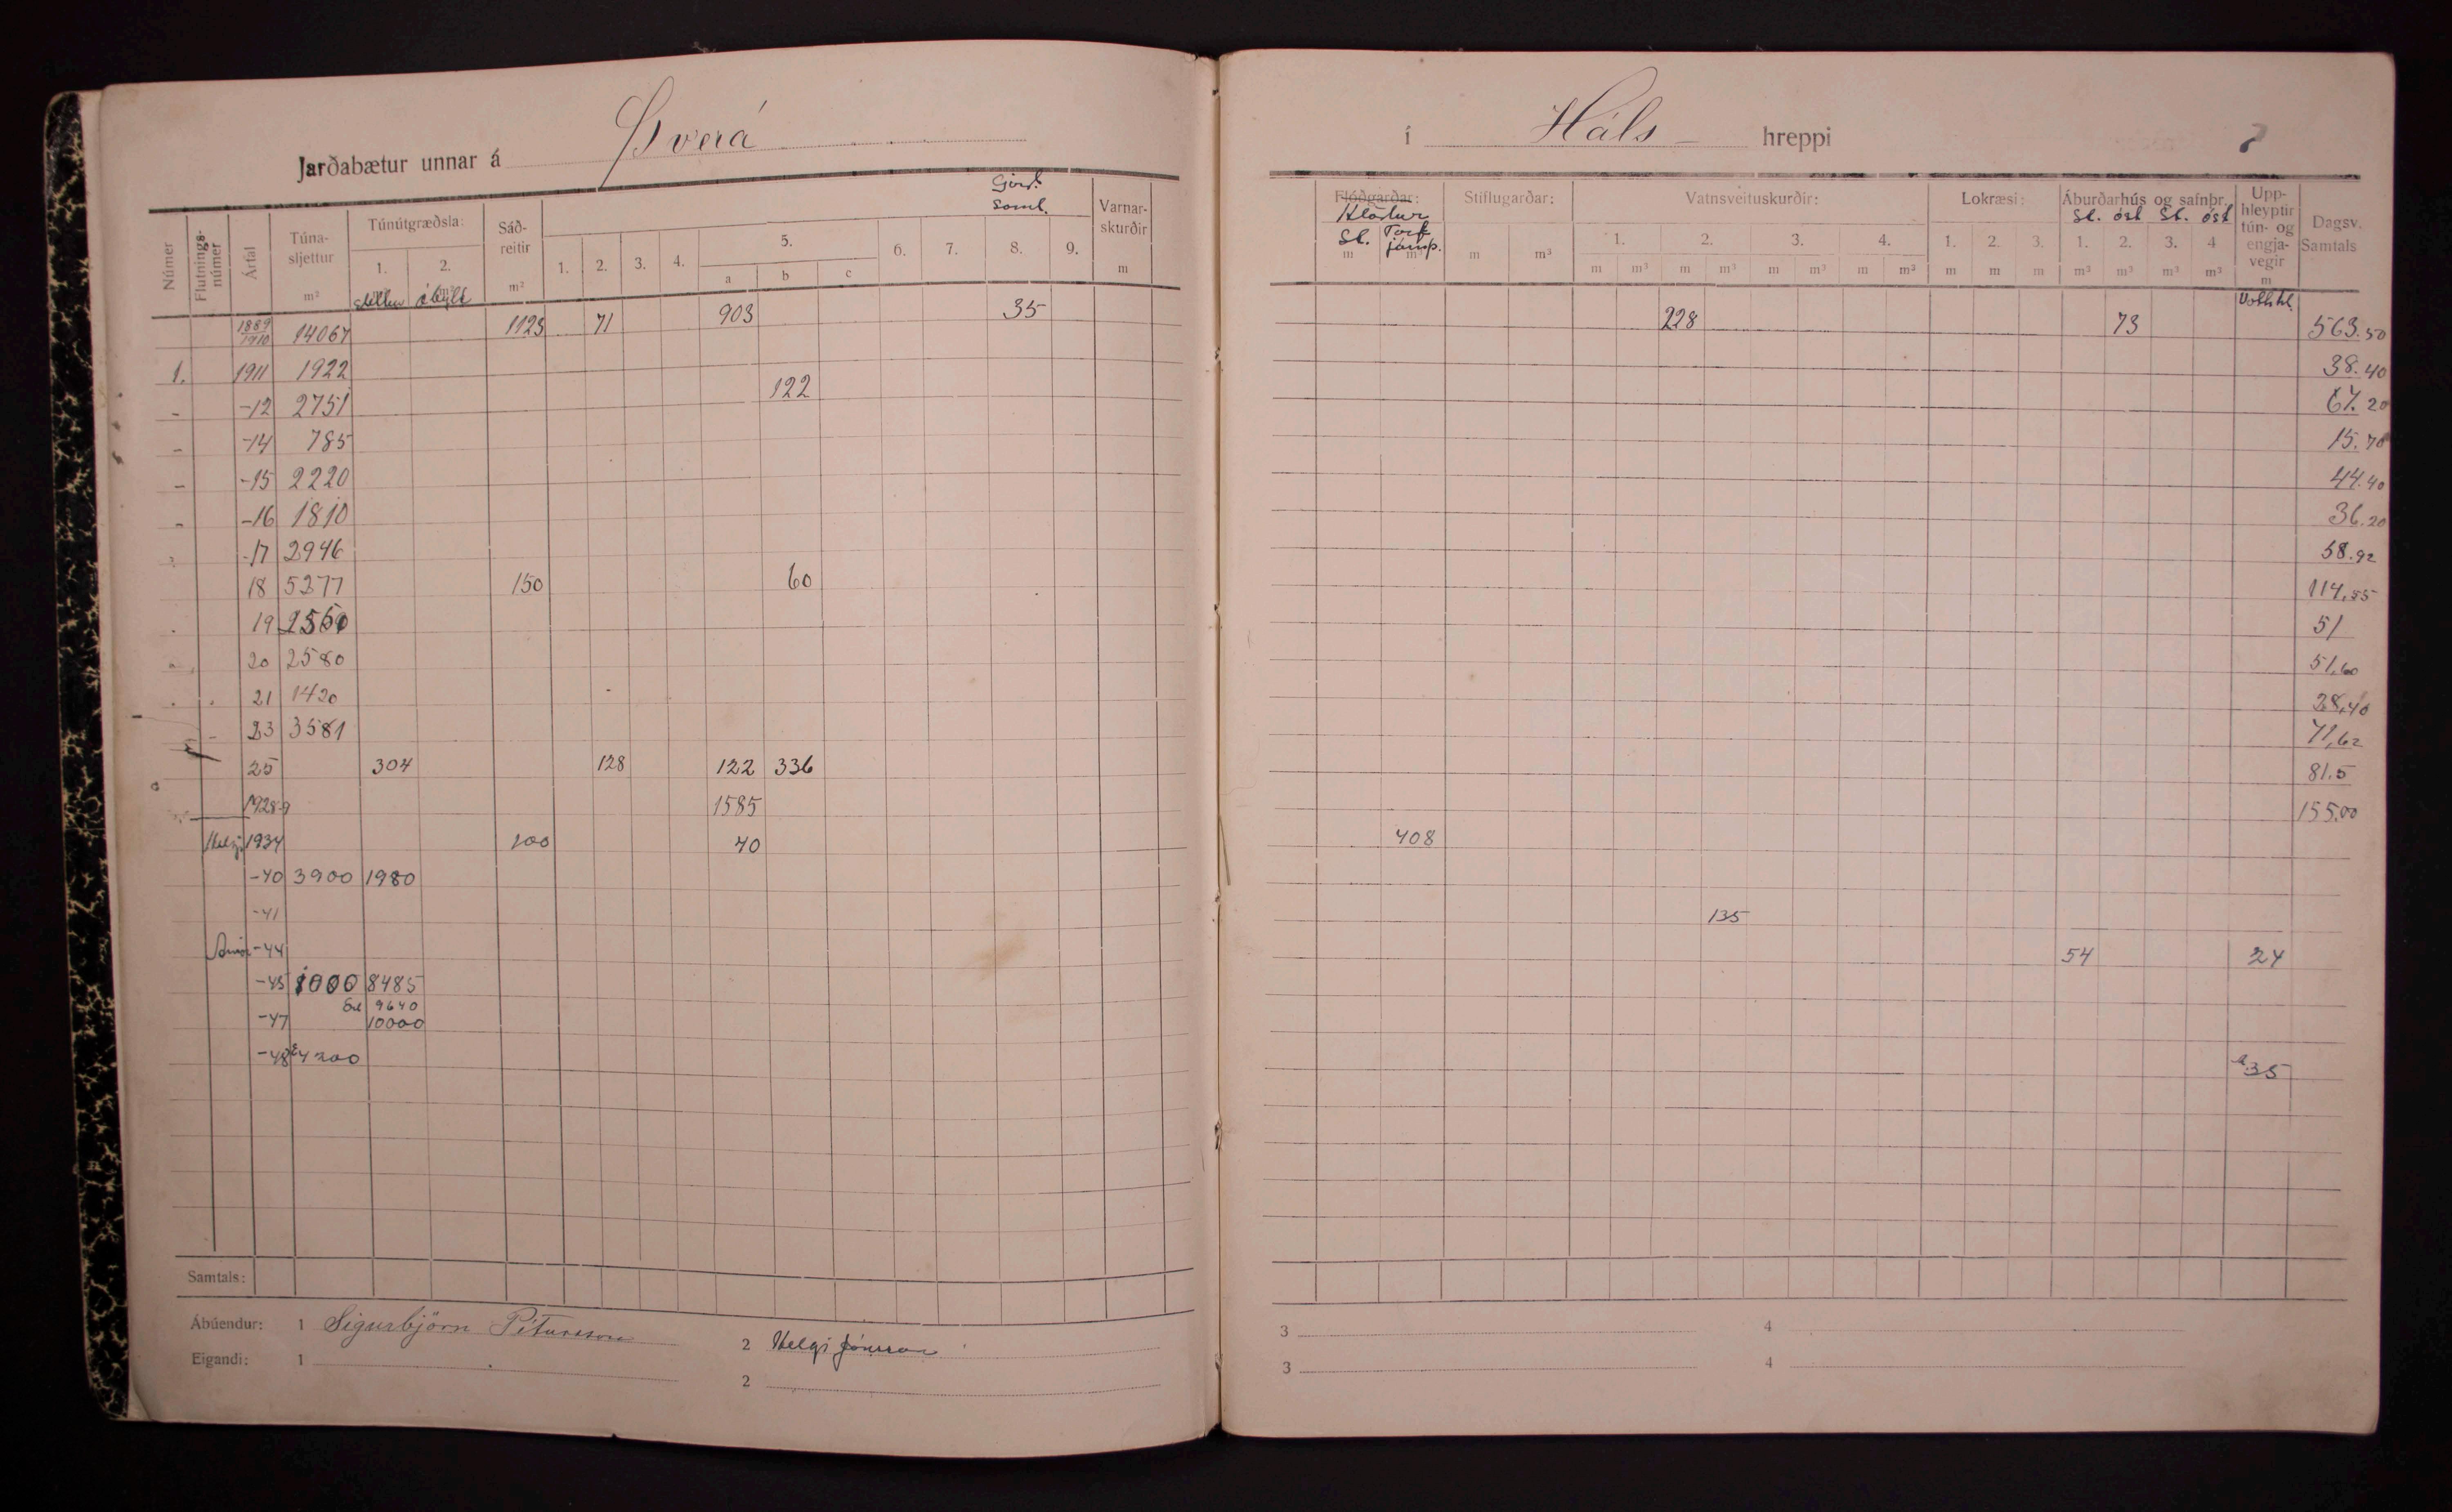 Jarðabætur unnar á Þverá
í Háls- hreppi
Númer
Flutnings-
númer
Ártal
Túna-
sljettur
m²
Túnútgræðsla:
1. 2.
Sáð-
reitir
m²
1. 2. 3. 4. 5. 6. 7. 8. 9.
a b c
Varnar-
skurðir
m
Flóðgarðar:
m m³
Stiflugarðar:
m m³
Vatnsveituskurðir:
1. 2. 3. 4.
m m³ m m³ m m³ m m³
Lokræsi:
1. 2. 3.
m m m
Áburðarhús og safnþr.
St. óst St. óst
1. 2. 3. 4
m³ m³ m³ m³
Upp-
hleyptir
tún- og
engja-
vegir
m
Dagsv.
Samtals
1889/1910 14067 1123 71 903 35 228 73 563.50
1. 1911 1922 38.40
- -12 2751 122 67.20
- -14 785 15.70
- -15 2220 44.40
- -16 1810 36.20
-17 2946 58.92
18 5277 150 60 114,55
19 2550 51
20 2580 51,60
21 1420 28,40
23 3581 71,62
25 304 128 122 336 81.5
1928-9 1585 155.00
Helgi 1934 200 40 408
-40 3900 1980
-41 135
-44 54 24
-45 1000 8485
9640
-47 10000
-48 4200 35
Samtals:
Ábúendur: 1 Sigurbjörn Pétursson 2 Helgi Jónsson 3 4
Eigandi: 1 2 3 4